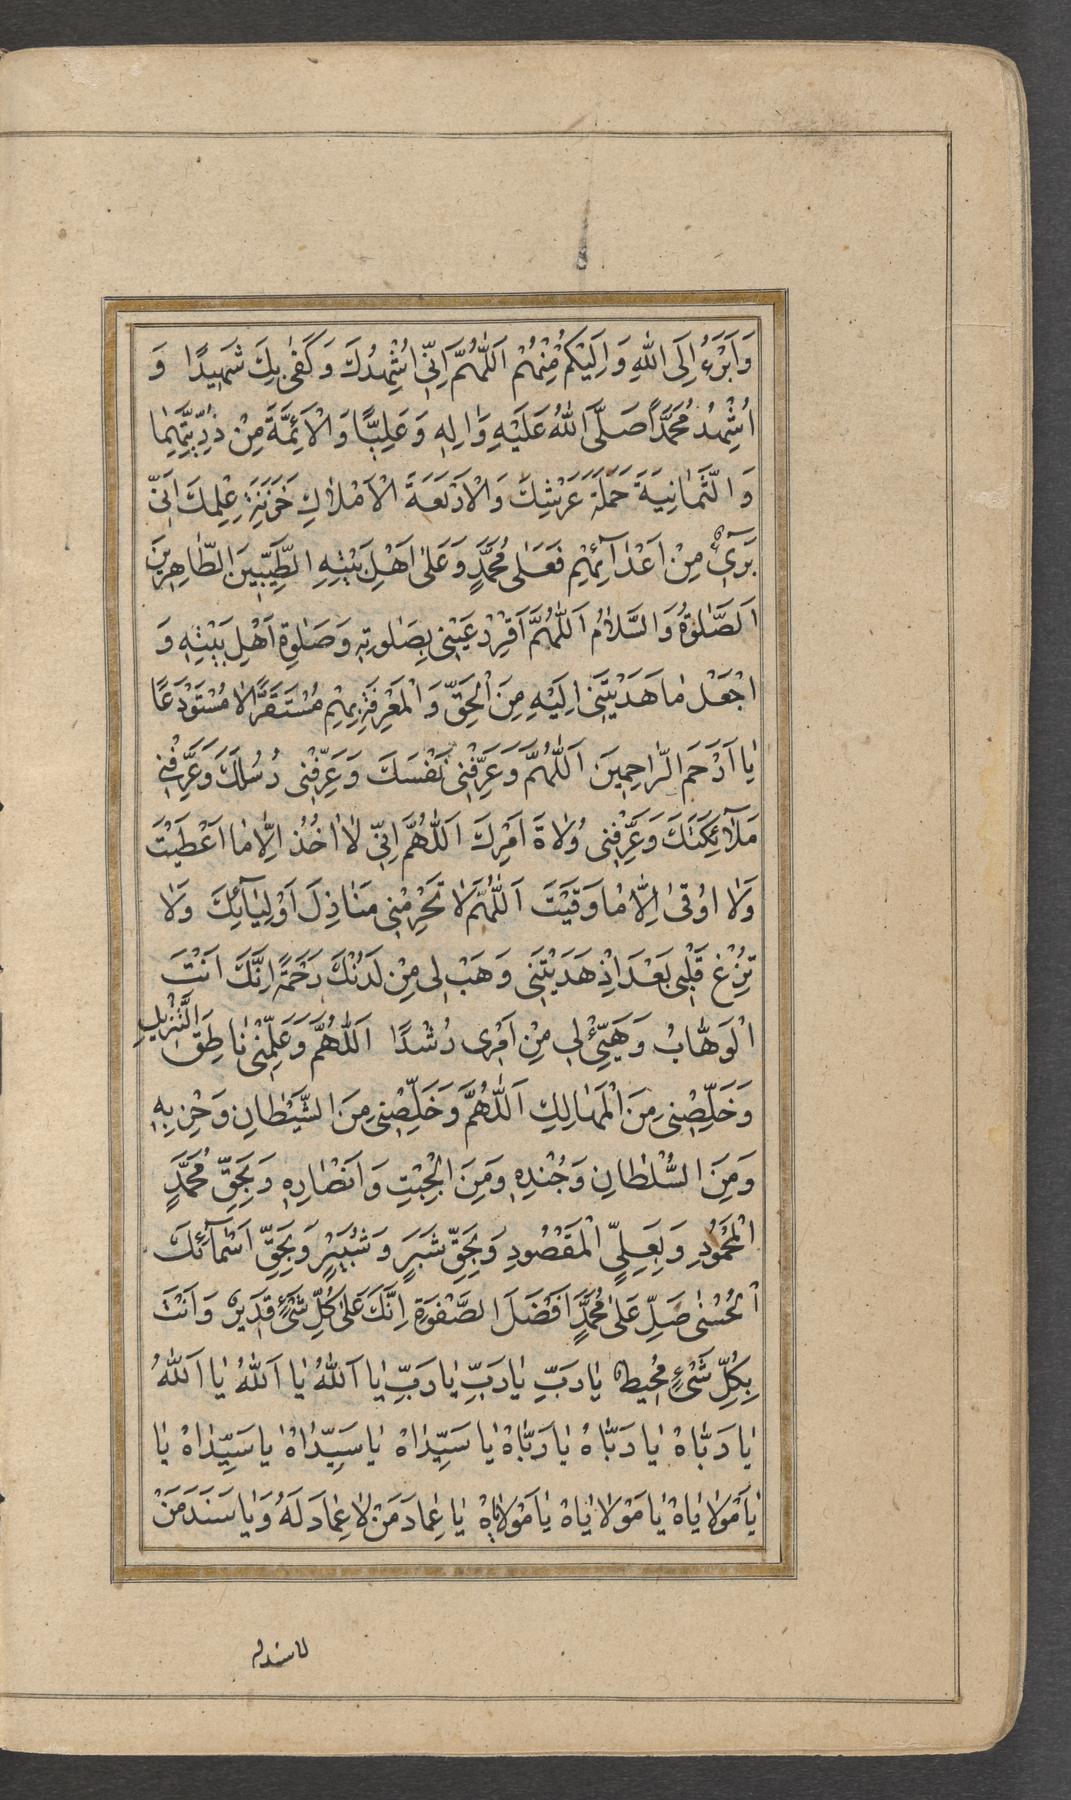 وَاَبْرَءُ اِلَى اللّٰهِ وَاِلَيْكُمْ مِنْهُمْ اَللّٰهُمَّ اِنّٖى اُشْهِدُكَ وَكَفٰى بِكَ شَهِيدًا وَ
اُشْهِدُ مُحَمَّدًا صَلَّى اللّٰهُ عَلَيْهِ وَاٰلِهٖ وَعَلِيًّا وَالْاَئِمَّةَ مِنْ ذُرِّيَّتِهِمٰا
وَالثَّمٰانِيَةَ حَمَلَةَ عَرْشِكَ وَالْاَرْبَعَةَ الْاَمْلٰاكِ خَزَنَةِ عِلْمِكَ اَنّٖى
بَرٖىٓءٌ مِنْ اَعْدٰآئِهِمْ فَعَلٰى مُحَمَّدٍ وَعَلٰى اَهْلِ بَيْتِهِ الطَّيِّبٖينَ الطّٰاهِرٖينَ
اَلصَّلٰوةُ وَالسَّلٰامُ اَللّٰهُمَّ اَقْرِرْ عَيْنٖى بِصَلٰوتِهٖ وَصَلٰوةِ اَهْلِ بَيْتِهٖ وَ
اجْعَلْ مٰا هَدَيْتَنٖى اِلَيْهِ مِنَ الْحَقِّ وَالْمَعْرِفَةِ بِهِمْ مُسْتَقَرًّا لٰا مُسْتَوْدَعًا
يٰا اَرْحَمَ الرّٰاحِمٖينَ اَللّٰهُمَّ وَعَرِّفْنٖى نَفْسَكَ وَعَرِّفْنٖى رُسُلَكَ وَعَرِّفْنٖى
مَلٰآئِكَتَكَ وَعَرِّفْنٖى وُلٰاةَ اَمْرِكَ اَللّٰهُمَّ اِنّٖى لٰا اٰخُذُ اِلّٰا مٰا اَعْطَيْتَ
وَلٰا اُوقٰى اِلّٰا مٰا وَقَيْتَ اَللّٰهُمَّ لٰا تَحْرِمْنٖى مَنٰازِلَ اَوْلِيٰآئِكَ وَلٰا
تُزِغْ قَلْبٖى بَعْدَ اِذْ هَدَيْتَنٖى وَهَبْ لٖى مِنْ لَدُنْكَ رَحْمَةً اِنَّكَ اَنْتَ
الْوَهّٰابُ وَهَيِّئْ لٖى مِنْ اَمْرٖى رُشْدًا اَللّٰهُمَّ وَعَلِّمْنٖى نٰاطِقَ التَّنْزٖيلِ
وَخَلِّصْنٖى مِنَ الْمَهٰالِكِ اَللّٰهُمَّ وَخَلِّصْنٖى مِنَ الشَّيْطٰانِ وَحِزْبِهٖ
وَمِنَ السُّلْطٰانِ وَجُنْدِهٖ وَمِنَ الْجِبْتِ وَاَنْصٰارِهٖ وَبِحَقِّ مُحَمَّدٍ
الْمَحْمُودِ وَبِعَلِيٍّ الْمَقْصُودِ وَبِحَقِّ شَبَّرٍ وَشَبٖيرٍ وَبِحَقِّ اَسْمٰآئِكَ
الْحُسْنٰى صَلِّ عَلٰى مُحَمَّدٍ اَفْضَلَ الصَّفْوَةِ اِنَّكَ عَلٰى كُلِّ شَىْءٍ قَدٖيرٌ وَاَنْتَ
بِكُلِّ شَىْءٍ مُحٖيطٌ يٰا رَبِّ يٰا رَبِّ يٰا رَبِّ يٰا اَللّٰهُ يٰا اَللّٰهُ يٰا اَللّٰهُ
يٰا رَبّٰاهُ يٰا رَبّٰاهُ يٰا رَبّٰاهُ يٰا سَيِّدٰاهُ يٰا سَيِّدٰاهُ يٰا سَيِّدٰاهُ يٰا
يٰا مَوْلٰايٰاهُ يٰا مَوْلٰايٰاهُ يٰا مَوْلٰايٰاهُ يٰا عِمٰادَ مَنْ لٰا عِمٰادَ لَهُ وَيٰا سَنَدَ مَنْ
لا سند له